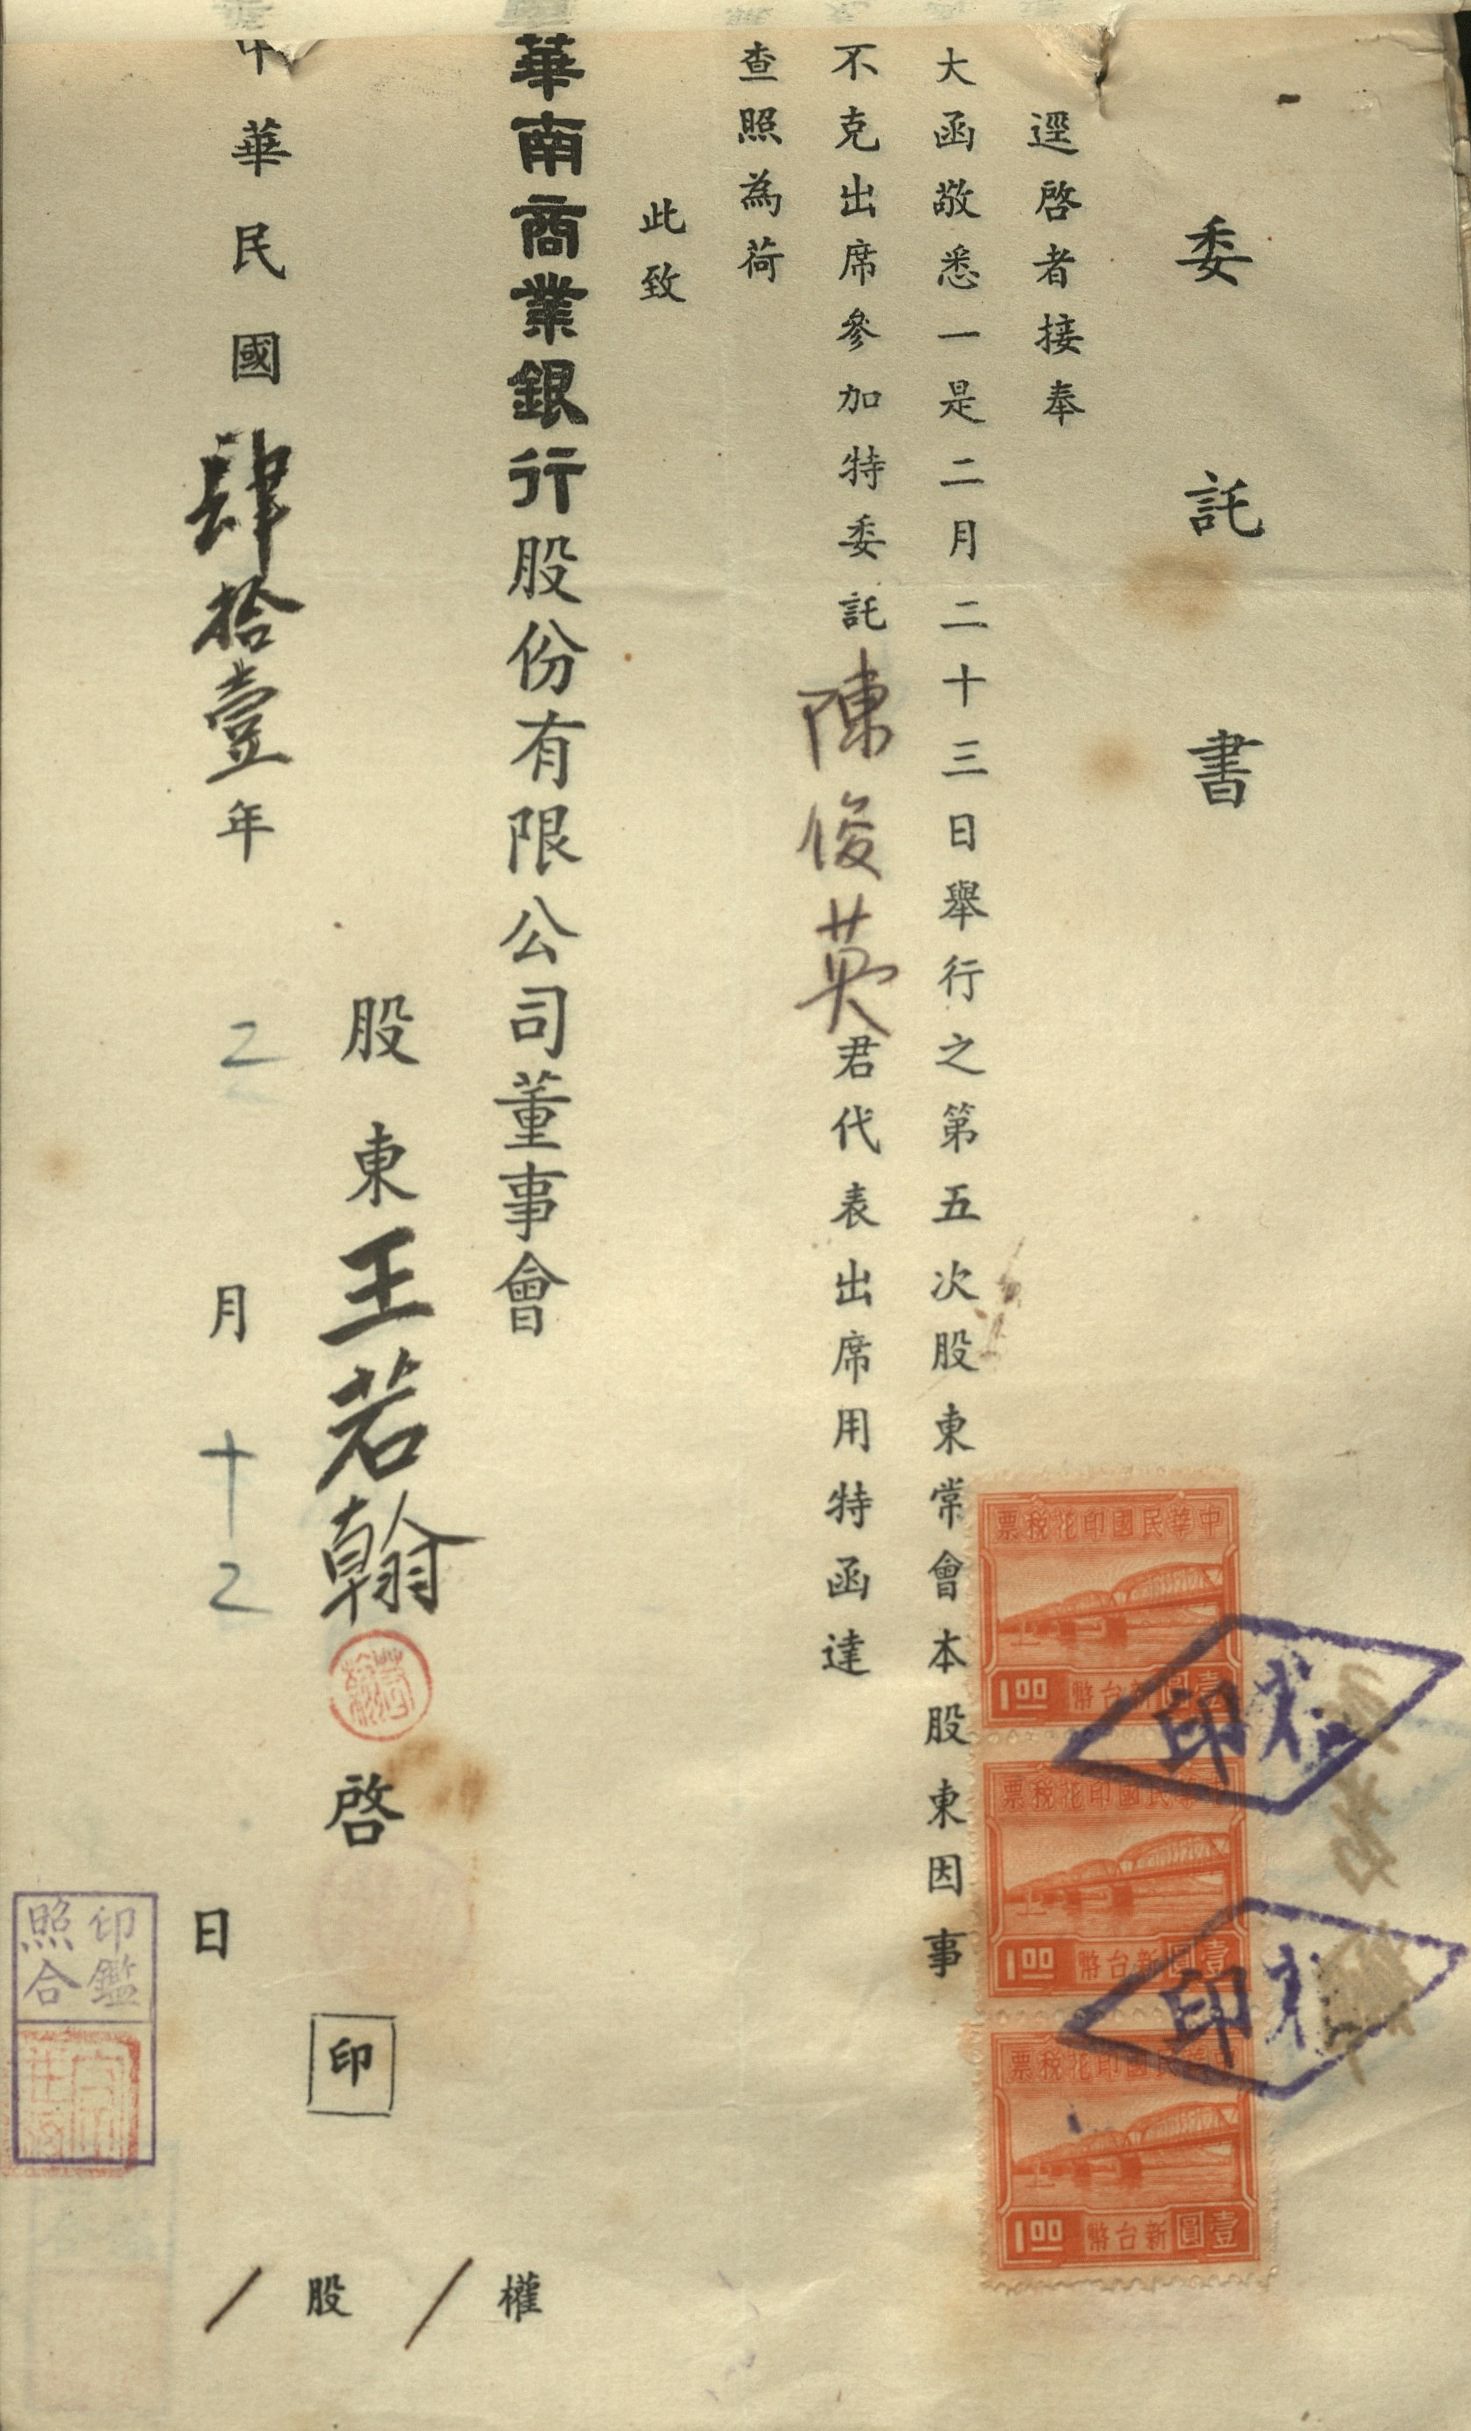 委託書
逕啓者接奉
大函敬悉一是二月二十三日舉行之第五次股東常會本股東因事
不克出席參加特委託陳俊英君代表出席用特函達
查照為荷
此致
華南商業銀行股份有限公司董事會
股東王若翰啓 印
中華民國肆拾壹年2月十2日
/股/權
中華民國印花稅票
1.00 新台幣壹圓
中華民國印花稅票
1.00 新台幣壹圓
中華民國印花稅票
1.00 新台幣壹圓
印鑑
照合